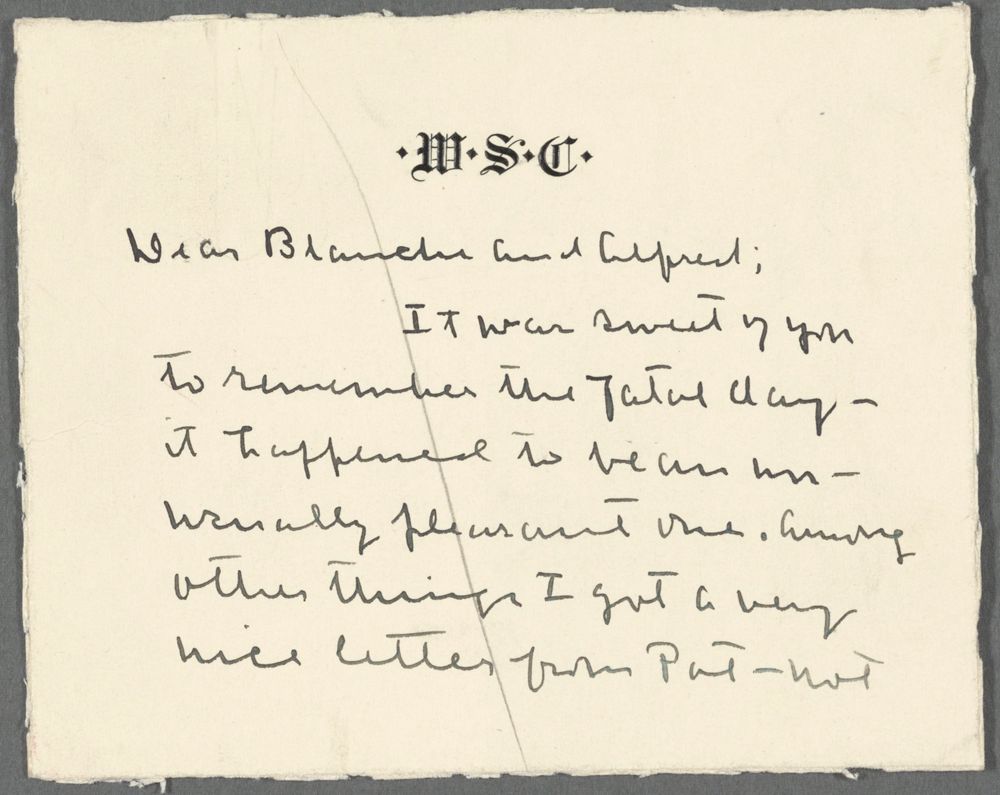 ·W·S·C·
Dear Blanche and Alfred;
It was sweet of you
to remember the fatal day—
it happened to be an un-
usually pleasant one. Among
other things I got a very
nice letter from Pat—not